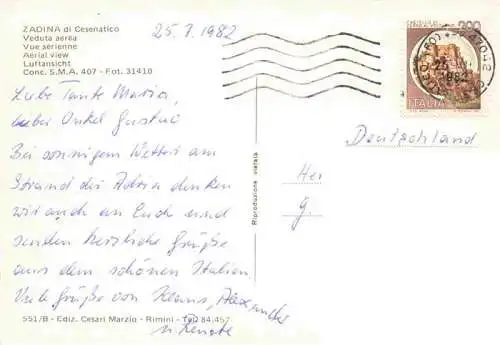 ZADINA di Cesenatico
Veduta aerea
Vue aerienne
Aerial view
Luftansicht
Conc. S.M.A. 407 - Fot. 31410
25.7.1982
Liebe Tante Maria,
lieber Onkel Gustav
Bei sonnigem Wetter am
Strand der Adria denken
wir auch an Euch und
senden herzliche Grüße
aus dem schönen Italien
Viele Grüße von Klaus, Alexander
u. Renate
551/B - Ediz. Cesari Marzio - Rimini - Tel. 84.457
Riproduzione vietata
300
1982
ITALIA
Deutschland
G.